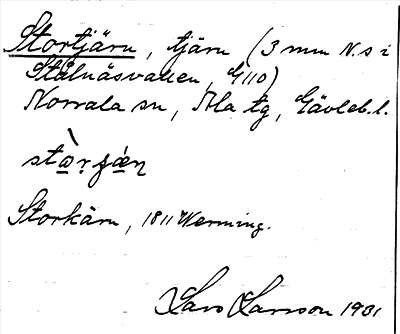 Stortjärn, tjärn (3 mm N. s i
Stålnäsvallen, G110)
Norrala sn, Ala tg, Gävleb. l.
Storkärn, 1811 Werming.
Lars Larsson 1931